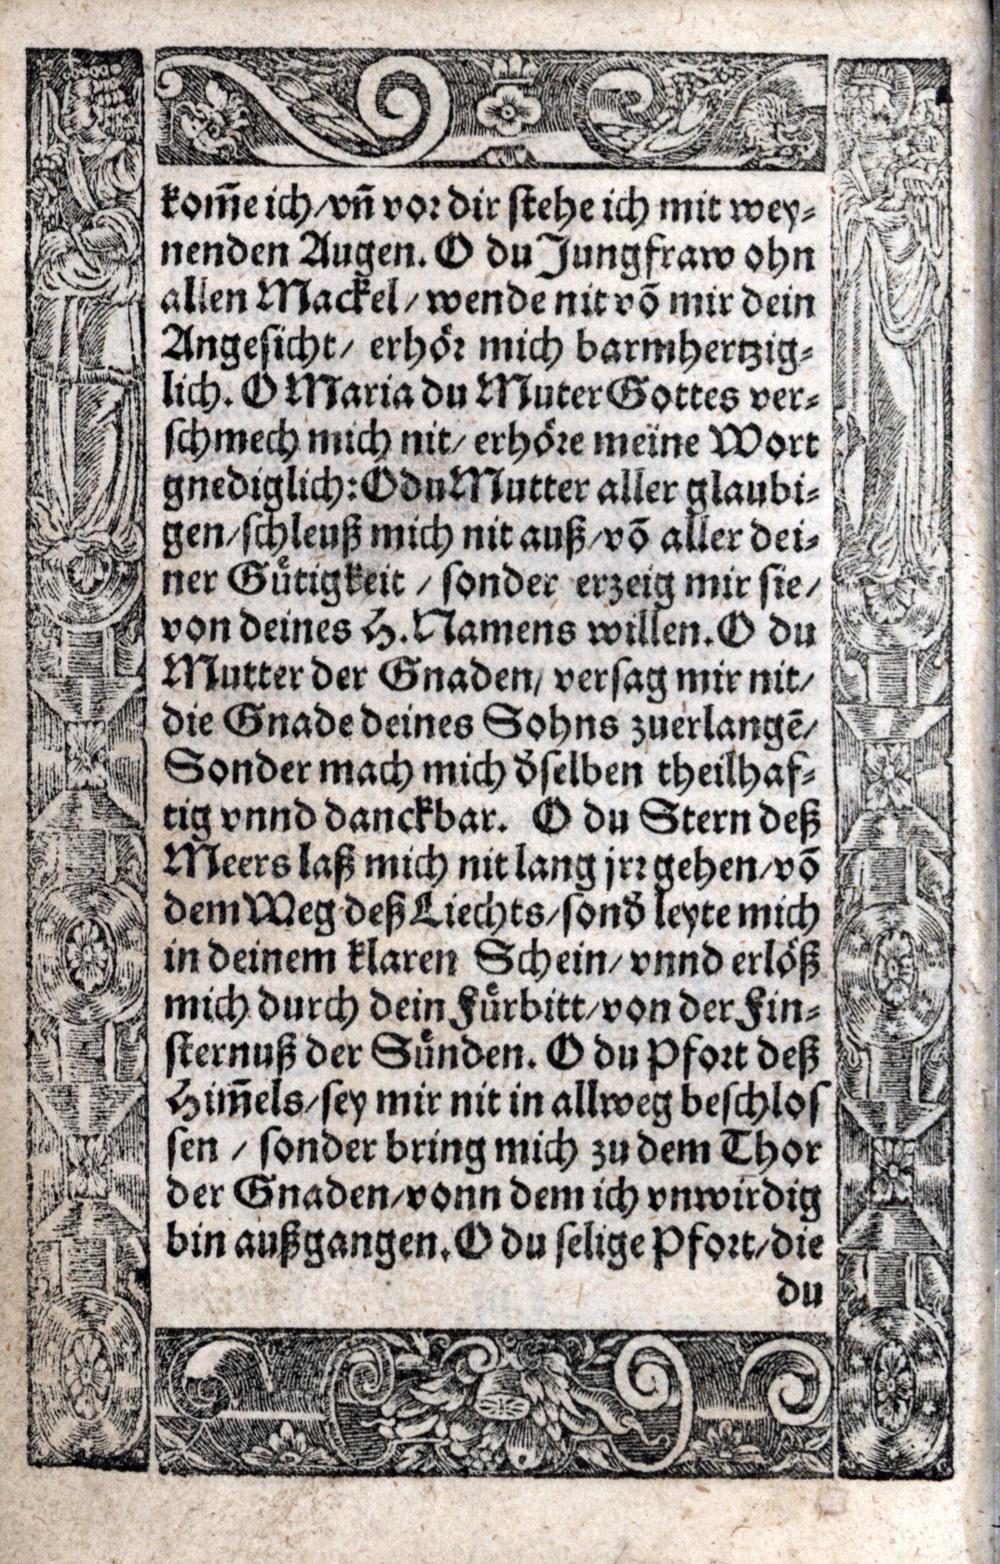 kom̃e ich/vñ vor dir stehe ich mit wey⸗
nenden Augen. O du Jungfraw ohn
allen Mackel/ wende nit võ mir dein
Angesicht/ erhoͤr mich barmhertzig⸗
lich. O Maria du Muter Gottes ver⸗
schmech mich nit/ erhoͤre meine Wort
gnediglich: O du Mutter aller glaubi⸗
gen/schleuß mich nit auß/võ aller dei⸗
ner Guͤtigkeit / sonder erzeig mir sie/
von deines H. Namens willen. O du
Mutter der Gnaden/ versag mir nit/
die Gnade deines Sohns zuerlangẽ/
Sonder mach mich d̛selben theilhaf⸗
tig vnnd danckbar. O du Stern deß
Meers laß mich nit lang jrr gehen/võ
dem Weg deß Liechts/sond̛ leyte mich
in deinem klaren Schein/ vnnd erloͤß
mich durch dein Fuͤrbitt/von der Fin⸗
sternuß der Suͤnden. O du Pfort deß
Him̃els/sey mir nit in allweg beschlos
sen / sonder bring mich zu dem Thor
der Gnaden/vonn dem ich vnwirdig
bin außgangen. O du selige Pfort/die
du